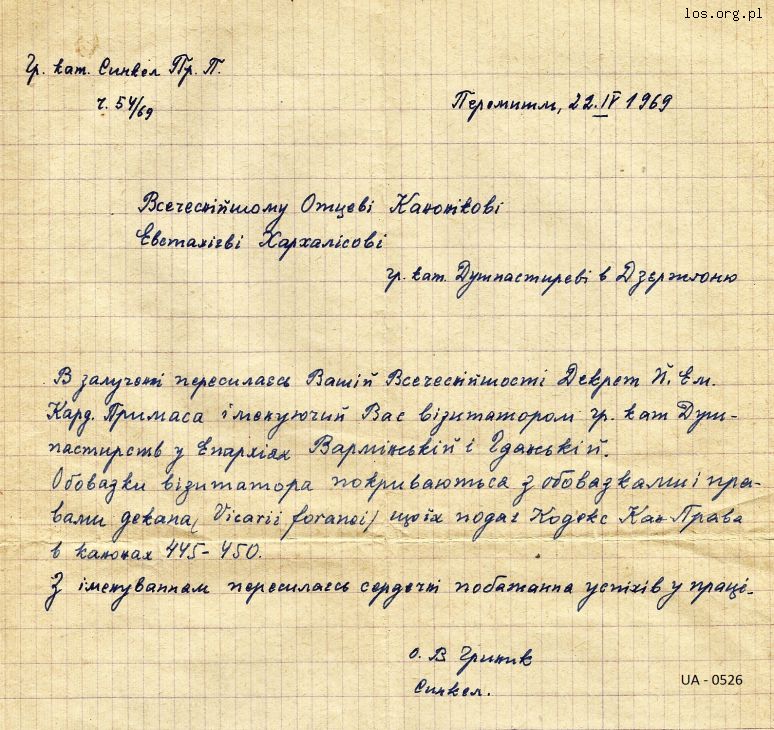 los.org.pl
Гр. кат. Синкел Пр. П.
ч. 54/69
Перемишль, 22.IV 1969
Всечеснійшому Отцеві Канонікові
Евстахієві Хархалісові
гр. кат. Душпастиреві в Дзєржґоню
В залученні пересилаєсь Вашій Всечеснійшости Декрет Й. Ем.
Кард. Примаса іменуючий Вас візитатором гр. кат Душ-
пастирств у Епархіях Вармінській і Ґданській.
Обовязки візитатора покриваються з обовязками і пра-
вами декана (Vicarii foranei) що їх подає Кодекс Кан Права
в канонах 445-450.
З іменуванням пересилаєсь сердечні побажання успіхів у праці.
о. В Гриник
Синкел.
UA - 0526